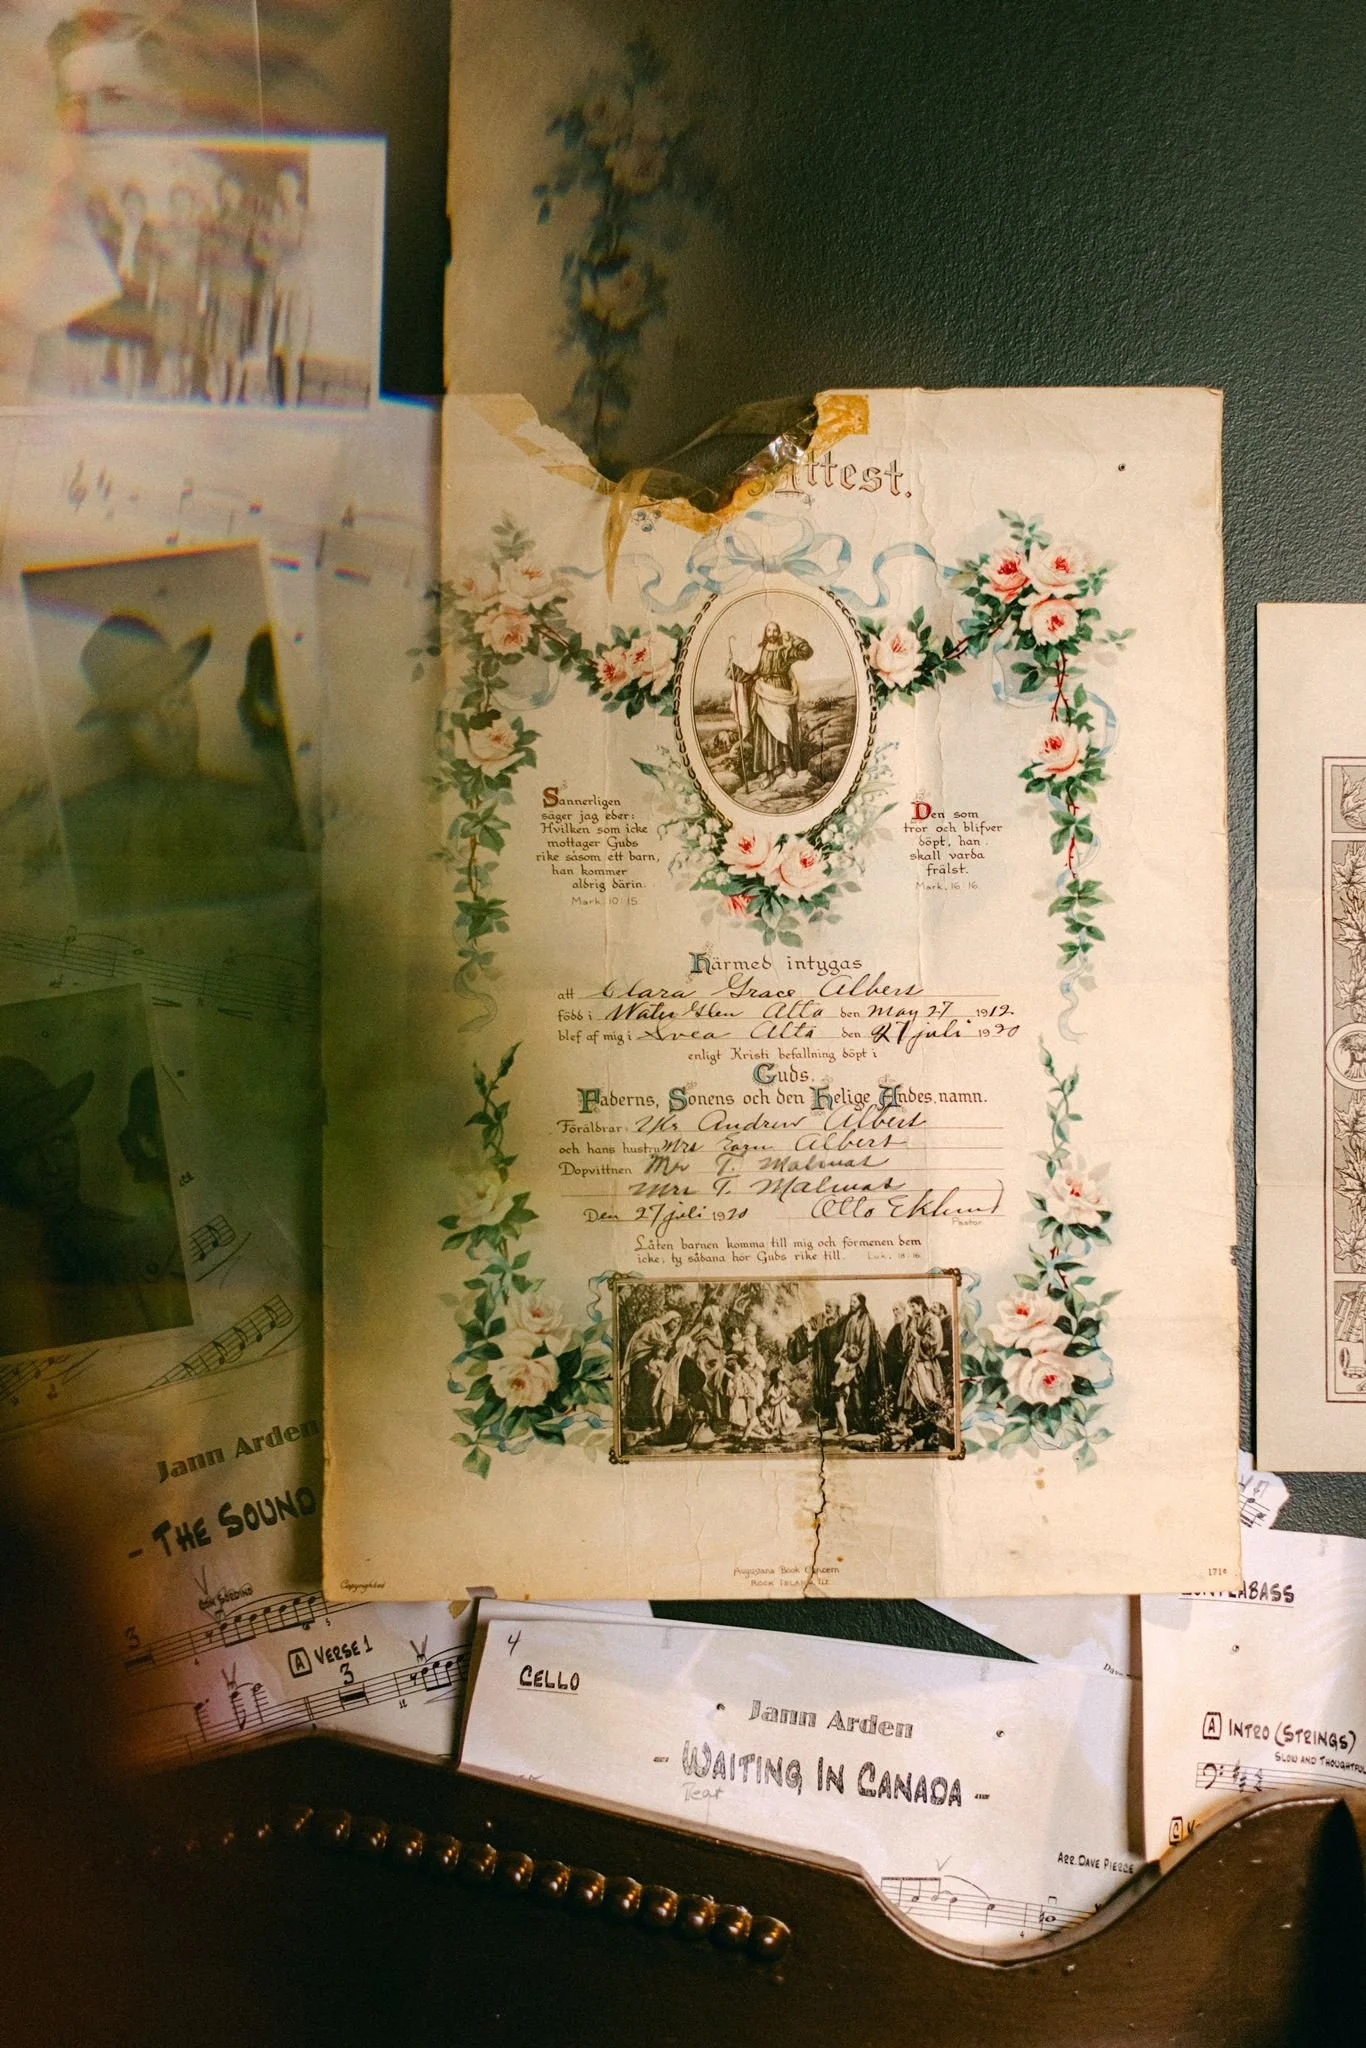 ttest.
Sannerligen
säger jag eder:
Hvilken som icke
mottager Guds
rike såsom ett barn,
han kommer
aldrig därin.
Mark. 10:15.
Den som
tror och blifver
döpt, han
skall varda
frälst.
Mark. 16:16.
Härmed intygas
att Clara Grace Albers
född i Water Glen Alta den May 27 1912
blef af mig i Svea Alta den 27 juli 1920
enligt Kristi befallning döpt i
Guds,
Faderns, Sonens och den Helige Andes, namn.
Föräldrar: Mr Andrew Albers
och hans hustru Mrs Albers
Dopvittnen Mr T.
Mrs T.
Den 27 juli 1920 Otto Eklund
Pastor
Låten barnen komma till mig och förmenen dem
icke, ty sådana hör Guds rike till. Luk. 18:16.
Copyrighted
Augustana Book Concern
Rock Island, Ill
171
Jann Arden
- THE SOUND
CON SORDINO
3
A VERSE 1
3
4
CELLO
Jann Arden
- WAITING IN CANADA -
ARR. DAVE PIERCE
CONTRABASS
A INTRO (STRINGS)
SLOW AND THOUGHTFUL
C